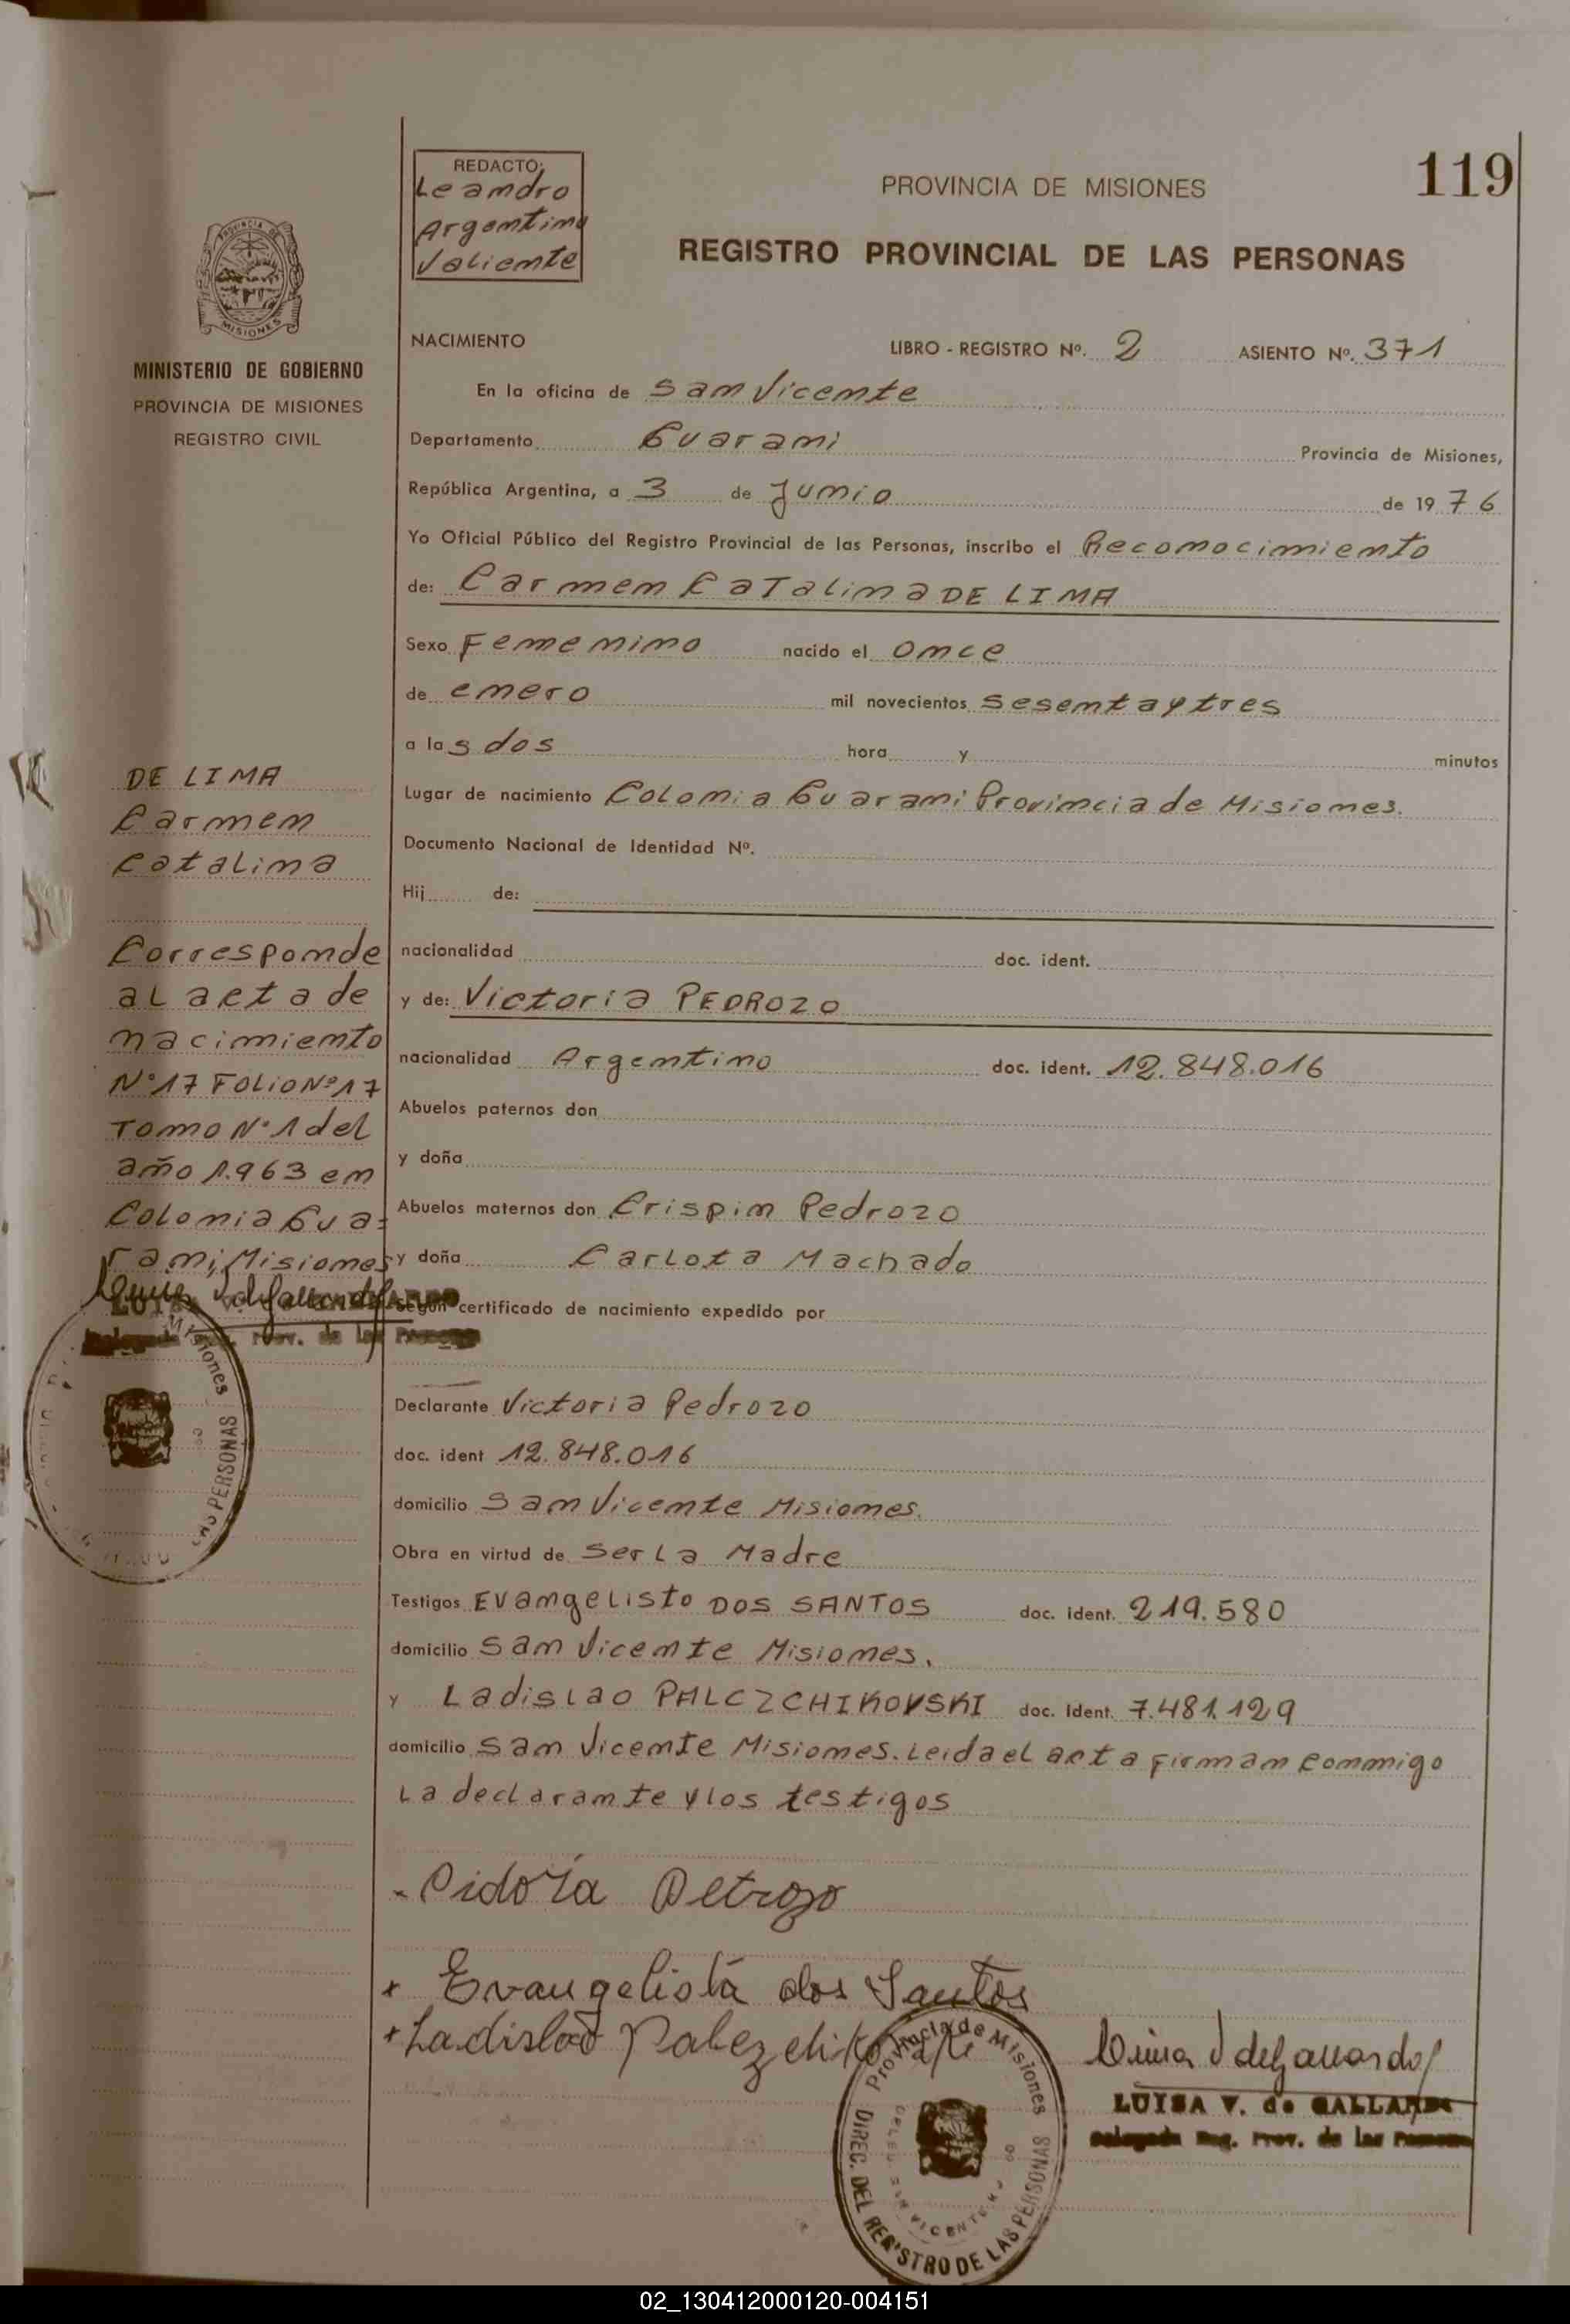 119
REDACTO:
Leandro
Argentino
Valiente
PROVINCIA DE MISIONES
REGISTRO PROVINCIAL DE LAS PERSONAS
PROVINCIA DE
MISIONES
MINISTERIO DE GOBIERNO
PROVINCIA DE MISIONES
REGISTRO CIVIL
NACIMIENTO LIBRO - REGISTRO Nº. 2 ASIENTO Nº. 371
En la oficina de San Vicente
Departamento Guarani Provincia de Misiones,
República Argentina, a 3 de Junio de 1976
Yo Oficial Público del Registro Provincial de las Personas, inscribo el Reconocimiento
de: Carmen Catalina DE LIMA
Sexo Femenino nacido el once
de enero mil novecientos sesenta y tres
a las dos hora y minutos
Lugar de nacimiento Colonia Guarani Provincia de Misiones.
Documento Nacional de Identidad Nº.
Hij de:
nacionalidad doc. ident.
y de: Victoria PEDROZO
nacionalidad Argentino doc. ident. 12.848.016
Abuelos paternos don
y doña
Abuelos maternos don Crispin Pedrozo
y doña Carlota Machado
Según certificado de nacimiento expedido por
Declarante Victoria Pedrozo
doc. ident 12.848.016
domicilio San Vicente Misiones.
Obra en virtud de Ser La Madre
Testigos Evangelisto DOS SANTOS doc. ident. 219.580
domicilio San Vicente Misiones.
y Ladislao PALCZCHIKOVSKI doc. Ident. 7.481.129
domicilio San Vicente Misiones. Leida el acta firman conmigo
La declarante y los testigos
DE LIMA
Carmen
Catalina
Corresponde
al acta de
nacimiento
N°17 Folio Nº17
Tomo N°1 del
año 1.963 en
Colonia Gua=
rani, Misiones
LUISA V.
Prov. de las
Misiones
LAS PERSONAS
Evangelista dos Santos
Ladislao
Provincia de Misiones
DIREC. DEL REGISTRO DE LAS PERSONAS
LUISA V. de GALLARDO
Delegada Reg. Prov. de las Personas
02_130412000120-004151